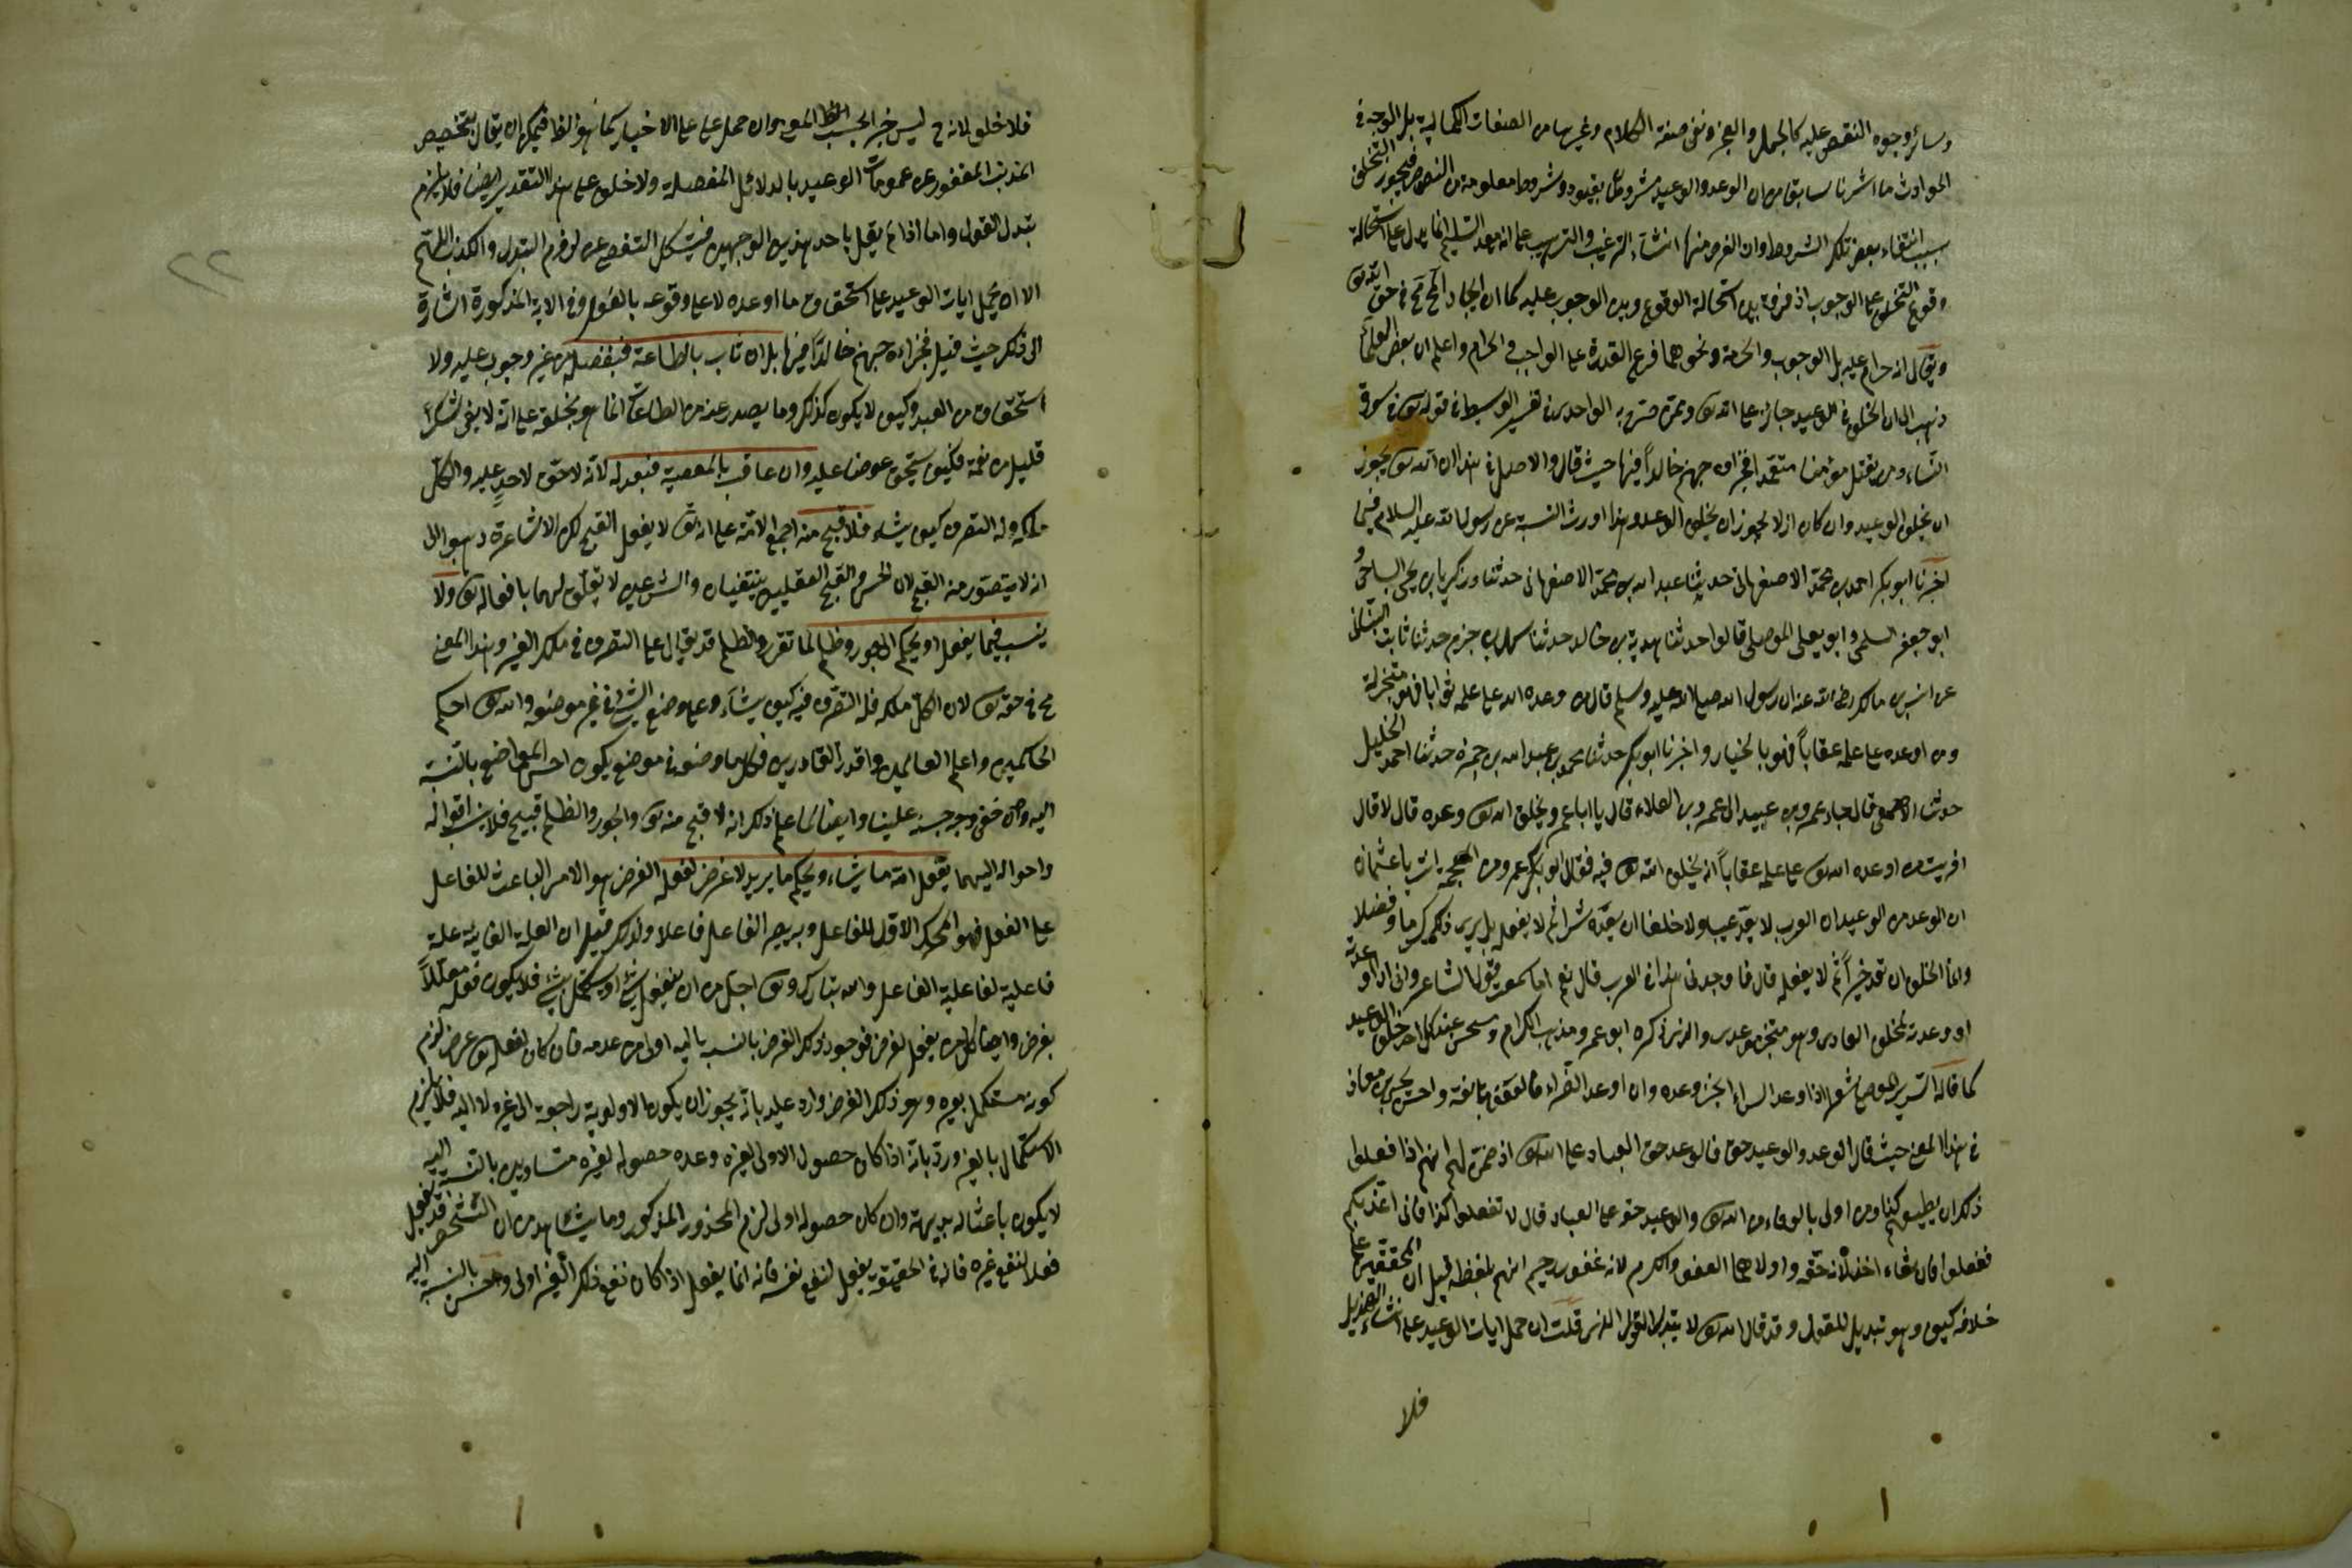 وسائر وجوه النقص عليه كالجهل والعجز ونفى صفة الكلام وغيرها من الصفات الكمالية بل الوجه في
الحوادث ما اشرنا سابقا من ان الوعد والوعيد مشروطان بقيود وشروط معلومة من النصوص فيجوز التخلف
بسبب انتفاء بعض تلك الشروط وان الغرض منها انشاء الترغيب والترهيب على انه بعد التسليم انما يدل على استحالة
وقوع التخلف لا على الوجوب اذ فرق بين استحالة الوقوع وبين الوجوب عليه كما ان ايجاد المح مح في حق الله تع
ويقال انه حرام عليه بل الوجوب والحرمة ونحوهما فرع القدرة على الواجب والحرام واعلم ان بعض العلماء
ذهب الى ان الخلف في الوعيد جائز على الله تع وممن صرح به الواحدى في تفسير الوسيط في قوله تع في سورة
النساء ومن يقتل مؤمنا متعمدا فجزاؤه جهنم خالدا فيها حيث قال والاصل في هذا ان الله تع يجوز
ان يخلف الوعيد وان كان لا يجوز ان يخلف الوعد وبهذا وردت السنة عن رسول الله عليه السلام فيما
اخبرنا ابو بكر احمد بن محمد الاصفهانى حدثنا عبد الله بن محمد الاصفهانى حدثنا زكريا بن يحيى الساجى و
ابو جعفر السلمى وابو يعلى الموصلى قالوا حدثنا هدبة بن خالد حدثنا سهل بن حزم حدثنا ثابت البنانى
عن انس بن مالك رضى الله عنه ان رسول الله صلى الله عليه وسلم قال من وعده الله على عمله ثوابا فهو منجز له
ومن اوعده على عمله عقابا فهو بالخيار واخبرنا ابو بكر حدثنا محمد بن عبد الله بن حمزة حدثنا احمد الخليل
حدثنا الاصمعى قال جاء عمرو بن عبيد الى عمرو بن العلاء قال يا ابا عمرو يخلف الله تع وعده قال لا قال
افرايت من اوعده الله تع على عمله عقابا انه يخلف الله تع فيه فقال ابو عمرو من العجمة انت يا ابا عثمان
ان الوعد من الوعيد ان العرب لا يعد عيبا ولا خلفا ان يعد شرا ثم لا يفعله بل يرى ذلك كرما وفضلا
وانما الخلف ان تعد خيرا ثم لا يفعله قال فاوجدنى هذا في العرب قال نعم اما سمعت قول الشاعر وانى اذا اوعدته
او وعدته لمخلف ايعادى ومنجز موعدى والذى ذكره ابو عمرو مذهب الكرام ومستحسن عند كل احد خلف الوعيد
كما قاله السرى الموصلى شعر اذا وعد السراء انجز وعده وان اوعد الضراء فالعفو مانعه واحسن يحيى بن معاذ
في هذا المعنى حيث قال الوعد والوعيد حق فالوعد حق العباد على الله تع اذ ضمن لهم انهم اذا فعلوا
ذلك ان يعطيهم كذا ومن اولى بالوفاء من الله تع والوعيد حقه على العباد قال لا تفعلوا كذا فانى اعذبكم
ففعلوا فان شاء عفا وان شاء اخذ لانه حقه واولاهما العفو والكرم لانه غفور رحيم انتهى بلفظه قيل ان المحققين على
خلافه كيف وهو تبديل للقول وقد قال الله تع لا يبدل القول لدى قلت ان حمل ايات الوعيد على انشاء التهديد
فلا
٢٢
فلا خلف لانه ح ليس خبرا بحسب المعنى وان حمل على الاخبار كما هو الظاهر فيمكن ان يقال بتخصيص
المذنب المغفور عن عمومات الوعيد بالدلائل المفصلة ولا خلف على هذا التقدير ايضا فلا يلزم
تبدل القول واما اذا لم يقل باحد هذين الوجهين فيشكل التفصى عن لزوم التبدل والكذب اللهم
الا ان يحمل ايات الوعيد على استحقاق ما اوعده لا على وقوعه بالفعل وفى الاية المذكورة اشارة
الى ذلك حيث قيل فجزاءه جهنم خالدا فيها بل ان ثاب بالطاعة فبفضله من غير وجوب عليه ولا
استحقاق من العبد وكيف لا يكون كذلك وما يصدر عنه من الطاعات انما هو بخلقه على انه لا يفى بشكر
قليل من نعمه فكيف يستحق عوضا عليه وان عاقب بالمعصية فبعدله لانه لا حق لاحد عليه والكل
ملكه وله التصرف كيف يشاء فلا قبح منه اجمع الامة على انه تع لا يفعل القبيح لكن الاشاعرة ذهبوا الى
انه لا يتصور منه القبح لان الحسن والقبح العقليين ينتفيان والشرعيين لا تعلق لهما بافعاله تع ولا
ينسب فيما يفعل او يحكم الى جور وظلم لما تقرر والظلم قد يقال على التصرف في ملك الغير وهذا المعنى
مح في حقه تع لان الكل ملكه فله التصرف فيه كيف يشاء وعلى وضع الشئ في غير موضعه والله تع احكم
الحاكمين واعلم العالمين واقدر القادرين فكل ما وضعه في موضع يكون احسن المواضع بالنسبة
اليه وان خفى وجه حسنه علينا وايضا لما علم ذلك انه لا قبح منه تع والجور والظلم قبيح فلا ينسب افعاله
واحواله اليهما يفعل الله ما يشاء ويحكم ما يريد لا غرض لفعله الغرض هو الامر الباعث للفاعل
على الفعل فهو المحرك الاول للفاعل وبه يصير الفاعل فاعلا ولذلك قيل ان العلة الغائية علة
فاعلية لفاعلية الفاعل والله تبارك وتع اجل من ان ينفعل بشئ او يستكمل بشئ فلا يكون فعله معللا
بغرض وايضا كل من يفعل لغرض فوجود ذلك الغرض بالنسبة اليه اولى من عدمه فان كان لفعله تع غرض لزم
كونه مستكملا بغيره وهو ذلك الغرض وارد عليه بانه يجوز ان يكون الاولوية راجعة الى غيره لا اليه فلا يلزم
الاستكمال بالغير ورد بانه اذا كان حصول الاولى لغيره وعدم حصوله لغيره متساويين بالنسبة اليه
لا يكون باعثا له بديهة وان كان حصوله اولى لزم المحذور المذكور وما يشاهد من ان الشخص قد يفعل
فعلا لنفع غيره فانه في الحقيقة يفعل لنفع نفسه فانه انما يفعل اذا كان نفع ذلك الغير اولى واحسن بالنسبة اليه